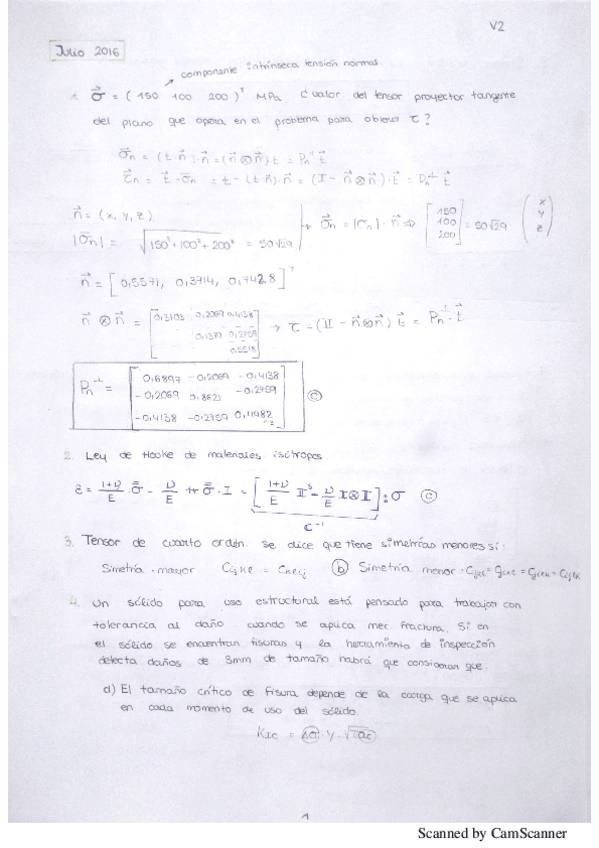 V2
Julio 2016
componente intrínseca tensión normal.
1. σ⃗ = ( 150 100 200 )ᵀ MPa. ¿valor del tensor proyector tangente
del plano que opera en el problema para obtener τ?
σ⃗n = (t·n⃗)·n⃗ = (n⃗⊗n⃗)t = Pn" t⃗
τ⃗n = t⃗ - σ⃗n = t - (t·n⃗)·n⃗ = (I - n⃗⊗n⃗)·t⃗ = Pn⊥ t⃗
n⃗ = (x, y, z)
|σ⃗n| = √150²+100²+200² = 50√29 → σ⃗n = |σn|·n⃗ ⇒ [150 100 200] = 50√29 (x y z)
n⃗ = [0,5571, 0,3714, 0,7428]ᵀ
n⃗ ⊗ n⃗ = [0,3103 0,2069 0,4138
0,1379 0,2759
0,5518] → τ = (II - n⃗⊗n⃗) t⃗ = Pn⊥·t⃗
Pn⊥ = [0,6897 -0,2069 -0,4138
-0,2069 0,8621 -0,2759
-0,4138 -0,2759 0,4482] ⓒ
2. Ley de Hooke de materiales isótropos.
ε = 1+ν/E σ - ν/E tr σ · I = [1+ν/E IIˢ - ν/E I⊗I] : σ ⓒ
C⁻¹
3. Tensor de cuarto orden. se dice que tiene simetrías menores si:
Simetría mayor Cijkl = Cklij ⓑ Simetría menor · Cijkl = Cjikl = Cijlk = Cjilk
4. Un sólido para uso estructural está pensado para trabajar con
tolerancia al daño cuando se aplica mec. fractura. Si en
el sólido se encuentran fisuras y la herramienta de inspección
detecta daños de 3mm de tamaño habrá que considerar que:
d) El tamaño crítico de fisura depende de la carga que se aplica
en cada momento de uso del sólido.
KIC = · Y · √πac
1
Scanned by CamScanner